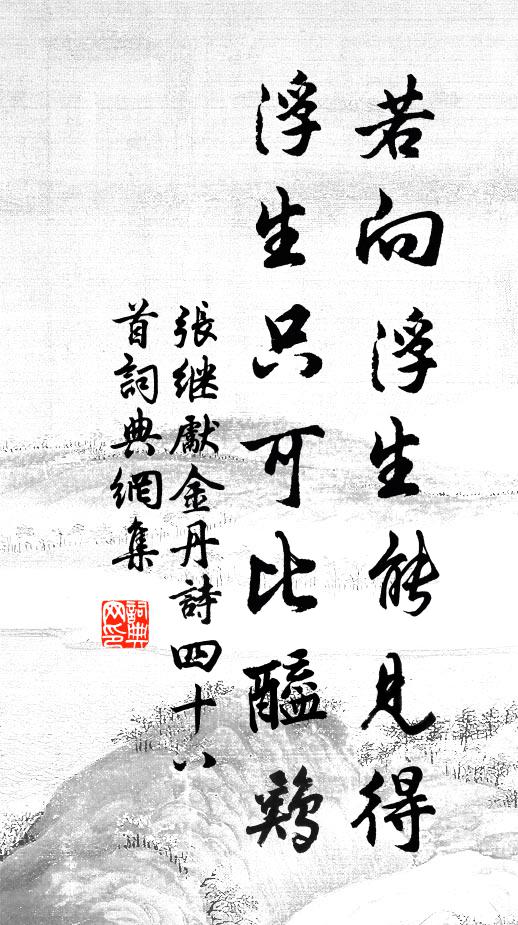 若向浮生能見得
浮生只可比醯鷄
張继獻金丹詩四十八
首詞典網集
詞典网印